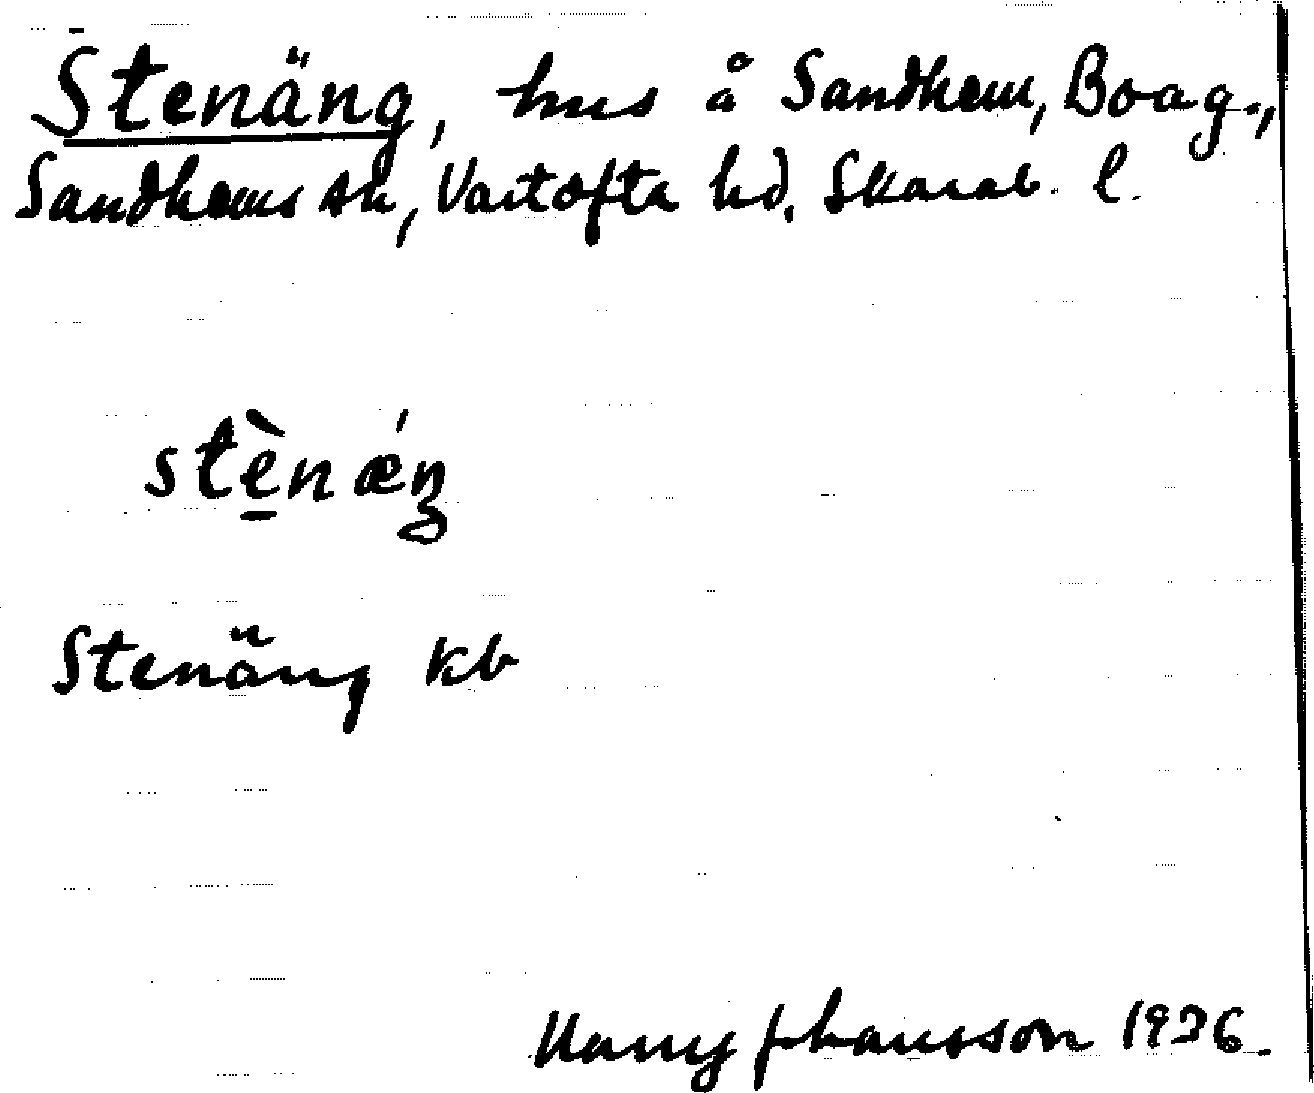 Stenäng, hus å Sandhem, Boag.,
Sandhems sn, Vartofta hd, Skarab. l.
stè̠nǽŋ
Stenäng kb
Harry Johansson 1936.